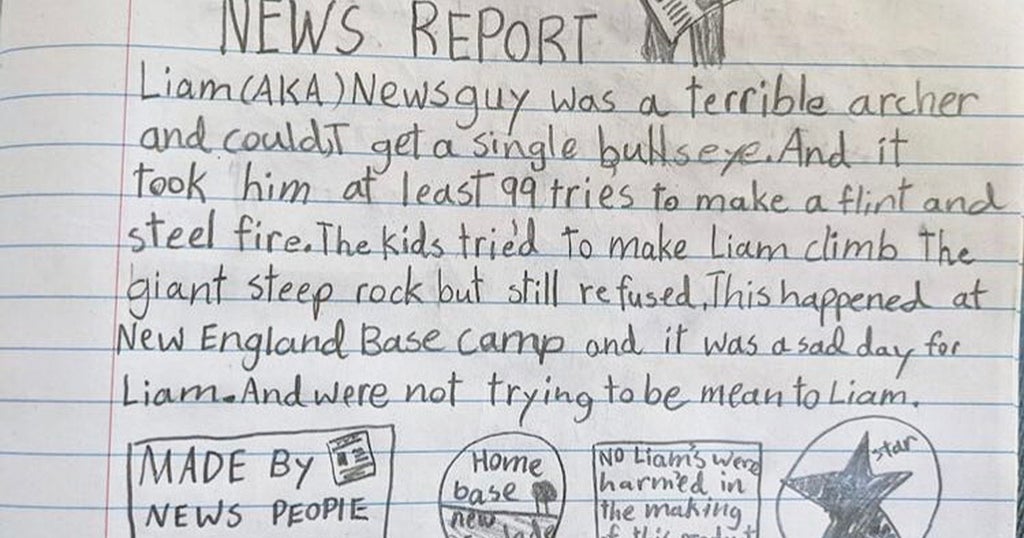 NEWS REPORT
Liam(AKA)Newsguy was a terrible archer
and could,T get a single bullseye.And it
took him at least 99 tries to make a flint and
steel fire.The kids tried to make Liam climb the
giant steep rock but still refused.This happened at
New England Base camp and it was a sad day for
Liam.And were not trying to be mean to Liam.
MADE BY
NEWS PEOPLE
Home
base
new
No Liam's were
harmed in
the making
of this
star